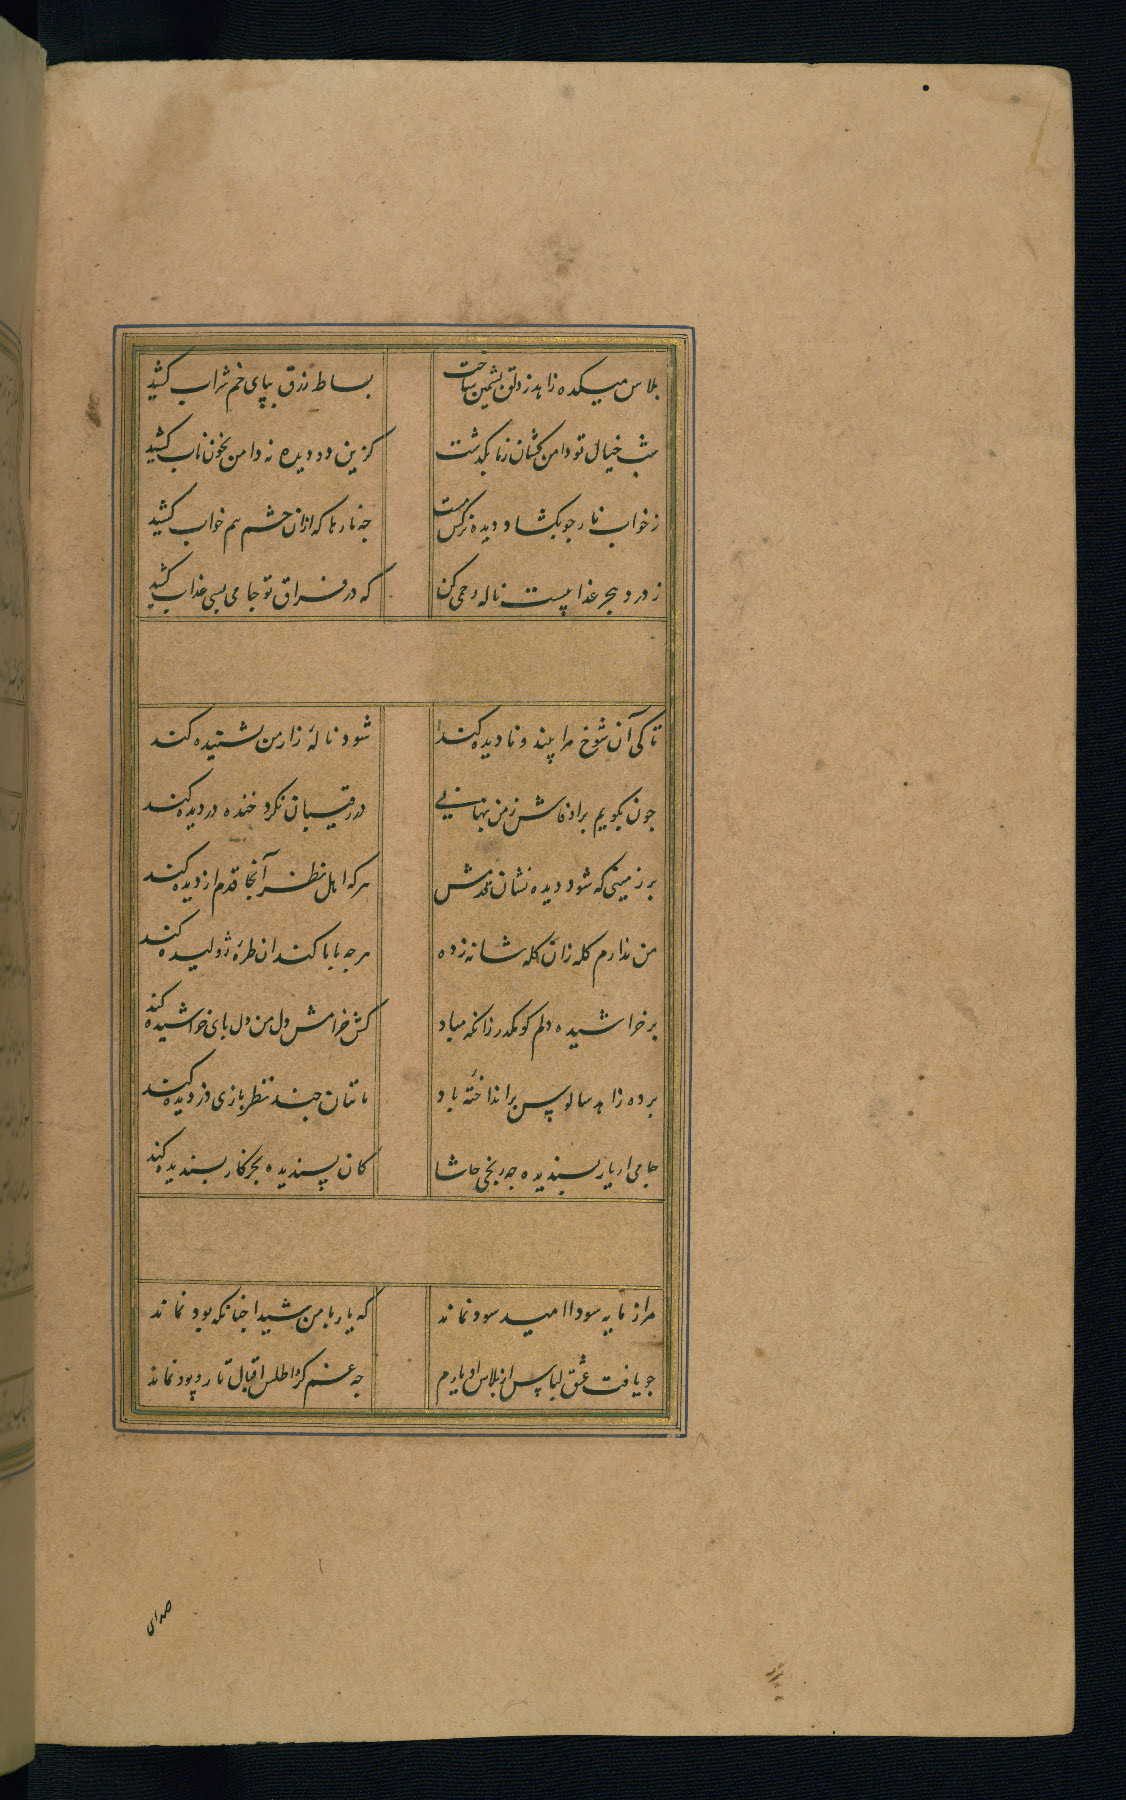 بلاس میکده زاهد ز دلق پشمین ساخت بساط زرق بپای خم شراب کشید
شب خیال تو دامن کشان ز ما بگذشت کزین دو دیده نه دامن بخون ناب کشید
ز خواب ناز جو بکشاد دیده نرکس مست جه نازها که ازان جشم نیم خواب کشید
ز درد هجر عذابیست ناله رحمی کن که در فراق تو جامی بسی عذاب کشید
تا کی آن شوخ مرا بیند و نادیده کند شود نالهٔ زار من نشنیده کند
جون بکویم براو فاش ز من پنهانی در رقیبان نکرد خنده دزدیده کند
بر زمینی که شود دیده نشان قدمش هر که اهل نظر آنجا قدم از دیده کند
من ندارم کله زان کله شانه زده هر جه با ما کند ان طرهٔ ژولیده کند
بر خراشیده دلم کو مکذر زانکه مباد کش خرامش دل من دل پای خراشیده کند
برده زاهد سالوس برانداخته باد تا جند نظربازی دزدیده کند
جامی ار یار بسندیده جه رنجی حاشا کان پسندیده بجز کار بسندیده کند
مرا ز مایه سودا امید سود نماند که یار با من شیدا جنانکه بود نماند
جو یافت عشق لباس از بلاس ادبارم جه غم کز اطلس اقبال تار و پود نماند
صدای